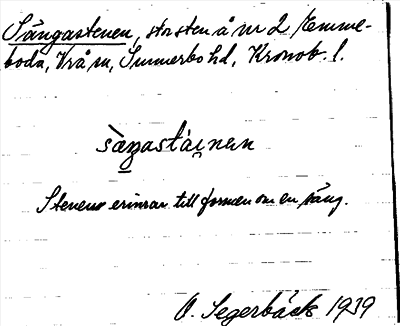 Sängastenen, stor sten å nr 2 Emme-
boda, Vrå sn, Sunnerbo hd, Kronob. l.
sæŋastáinen
Stenen erinrar till formen om en säng.
O. Segerbäck 1939